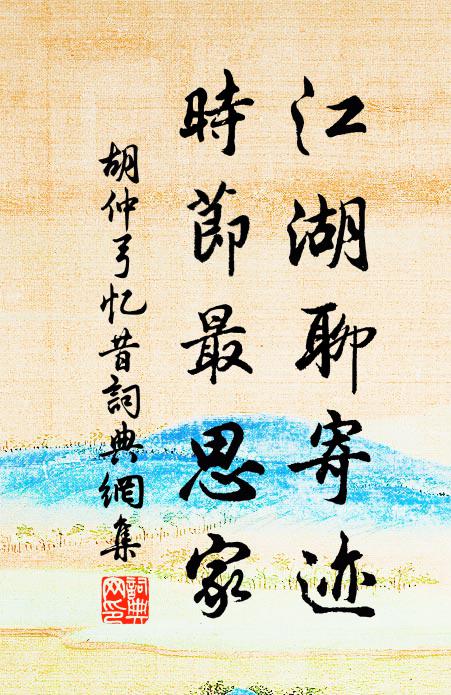 江湖聊寄迹
時節最思家
胡仲弓忆昔詞典網集
詞典网印